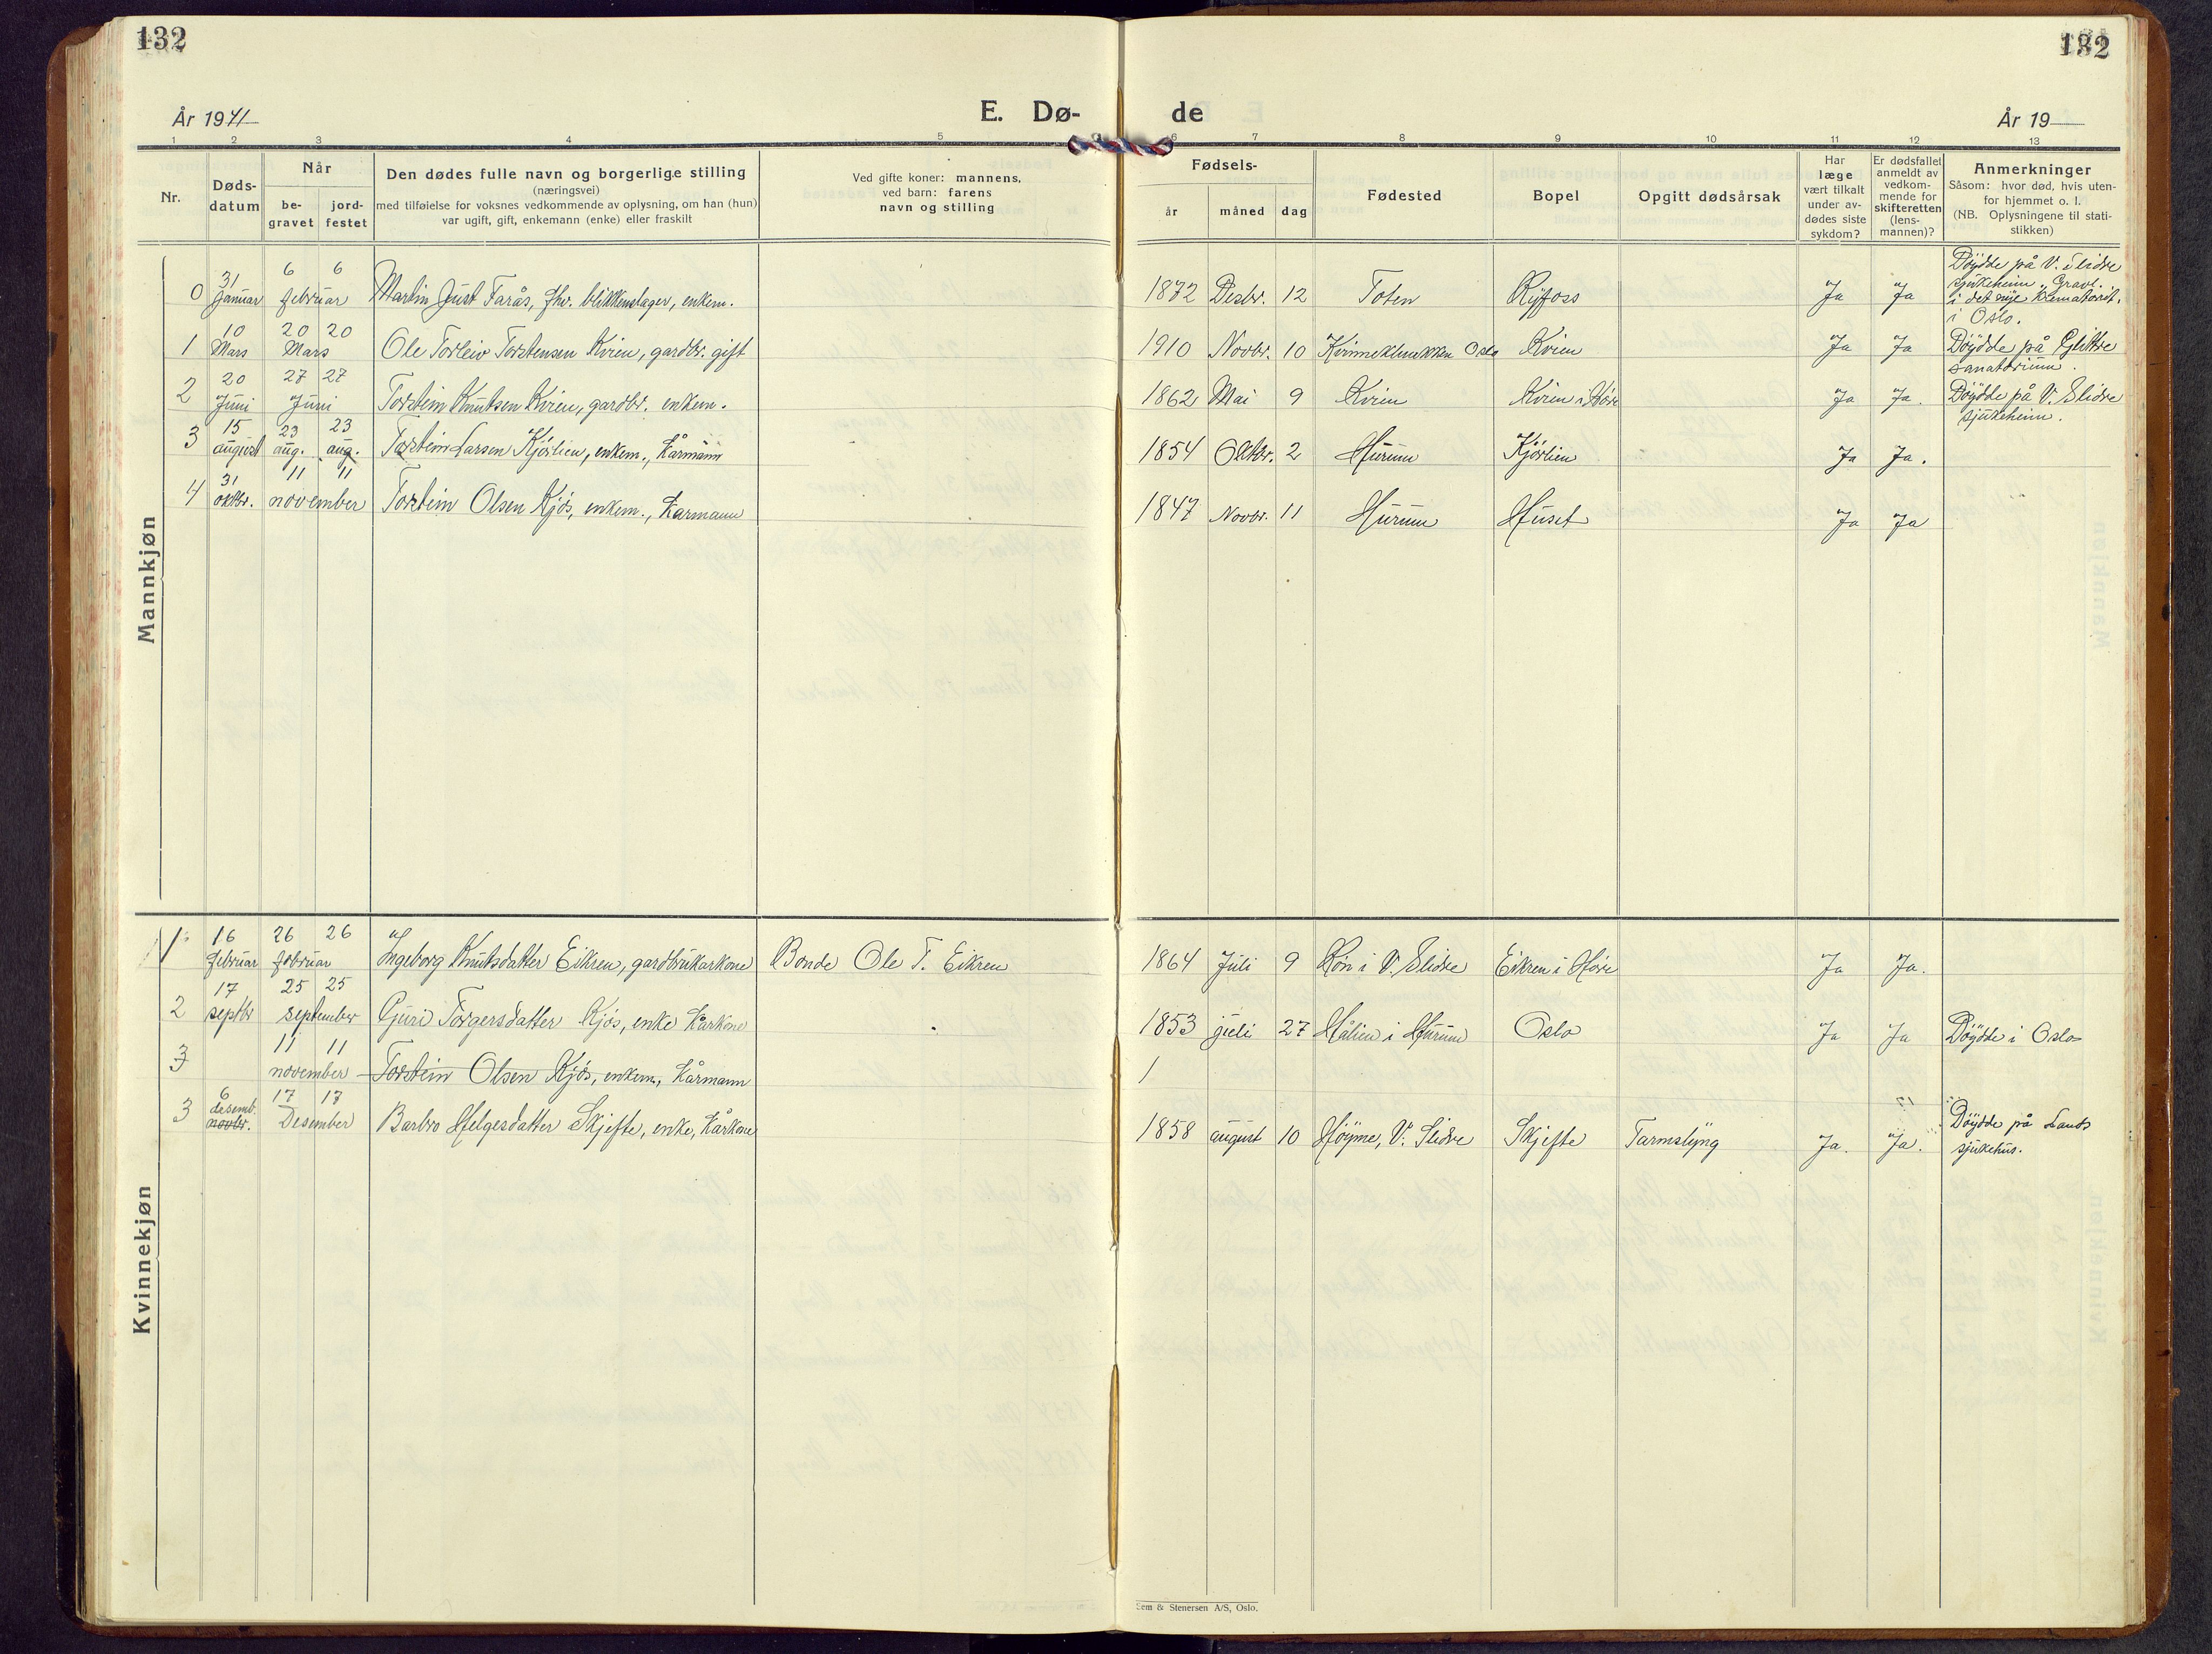 132
132
År 1941
E. Dø-
de
År 19
1 2 3 4 5 6 7 8 9 10 11 12 13
Nr.
Døds-
datum
Når
be-
gravet
jord-
festet
Den dødes fulle navn og borgerlige stilling
(næringsvei)
med tilføielse for voksnes vedkommende av oplysning, om han (hun)
var ugift, gift, enkemann (enke) eller fraskilt
Ved gifte koner: mannens,
ved barn: farens
navn og stilling
Fødsels-
år
måned
dag
Fødested
Bopel
Opgitt dødsårsak
Har
læge
vært tilkalt
under av-
dødes siste
sykdom?
Er dødsfallet
anmeldt av
vedkom-
mende for
skifteretten
(lens-
mannen)?
Anmerkninger
Såsom: hvor død, hvis uten-
for hjemmet o. l.
(NB. Oplysningene til stati-
stikken)
Mannkjøn
0 31 januar 6 6 februar Martin Just Farås, fhv. blikkenslager, enkem. 1872 Desbr. 12 Toten Ryfoss Ja Ja Döydde på V. Slidre
sjukeheim. Gravl.
i det nye krematorit.
i Oslo.
1 10 Mars 20 20 Mars Ole Torleiv Torstensen Kvien, gardbr. gift 1910 Novbr. 10 Oslo Kvien Ja Ja Döydde på Glittre
sanatorium.
2 20 Juni 27 27 Juni Torstein Knutsen Kvien, gardbr. enkem. 1862 Mai 9 Kvien Kvien i Høre Ja Ja. Döydde på V. Slidre
sjukeheim.
3 15 august 23 aug. 23 aug. Torstein Larsen Kjörlien, enkem., kårmann 1854 Oktbr. 2 Hurum Kjörlien Ja Ja.
4 31 oktbr. 11 11 november Torstein Olsen Kjös, enkem., kårmann 1847 Novbr. 11 Hurum Huset Ja Ja
Kvinnekjøn
1 16 februar 26 26 februar Ingeborg Knutsdatter Eikren, gardbrukarkone Bonde Ole T. Eikren 1864 Juli 9 Røn i V. Slidre Eikren i Høre Ja Ja.
2 17 septbr 25 25 september Guri Torgersdatter Kjös, enke kårkone 1853 juli 27 Hålien i Hurum Oslo Ja Ja Döydde i Oslo
3 11 11 november Torstein Olsen Kjös, enkem, kårmann 1
3 6 desemb. novbr. 17 17 Desember Barbro Helgesdatter Skjefte, enke, kårkone 1858 august 10 Höyme, V. Slidre Skjefte Tarmslyng Ja. Ja. Döydde på Lands
sjukehus.
Sem & Stenersen A/S, Oslo.